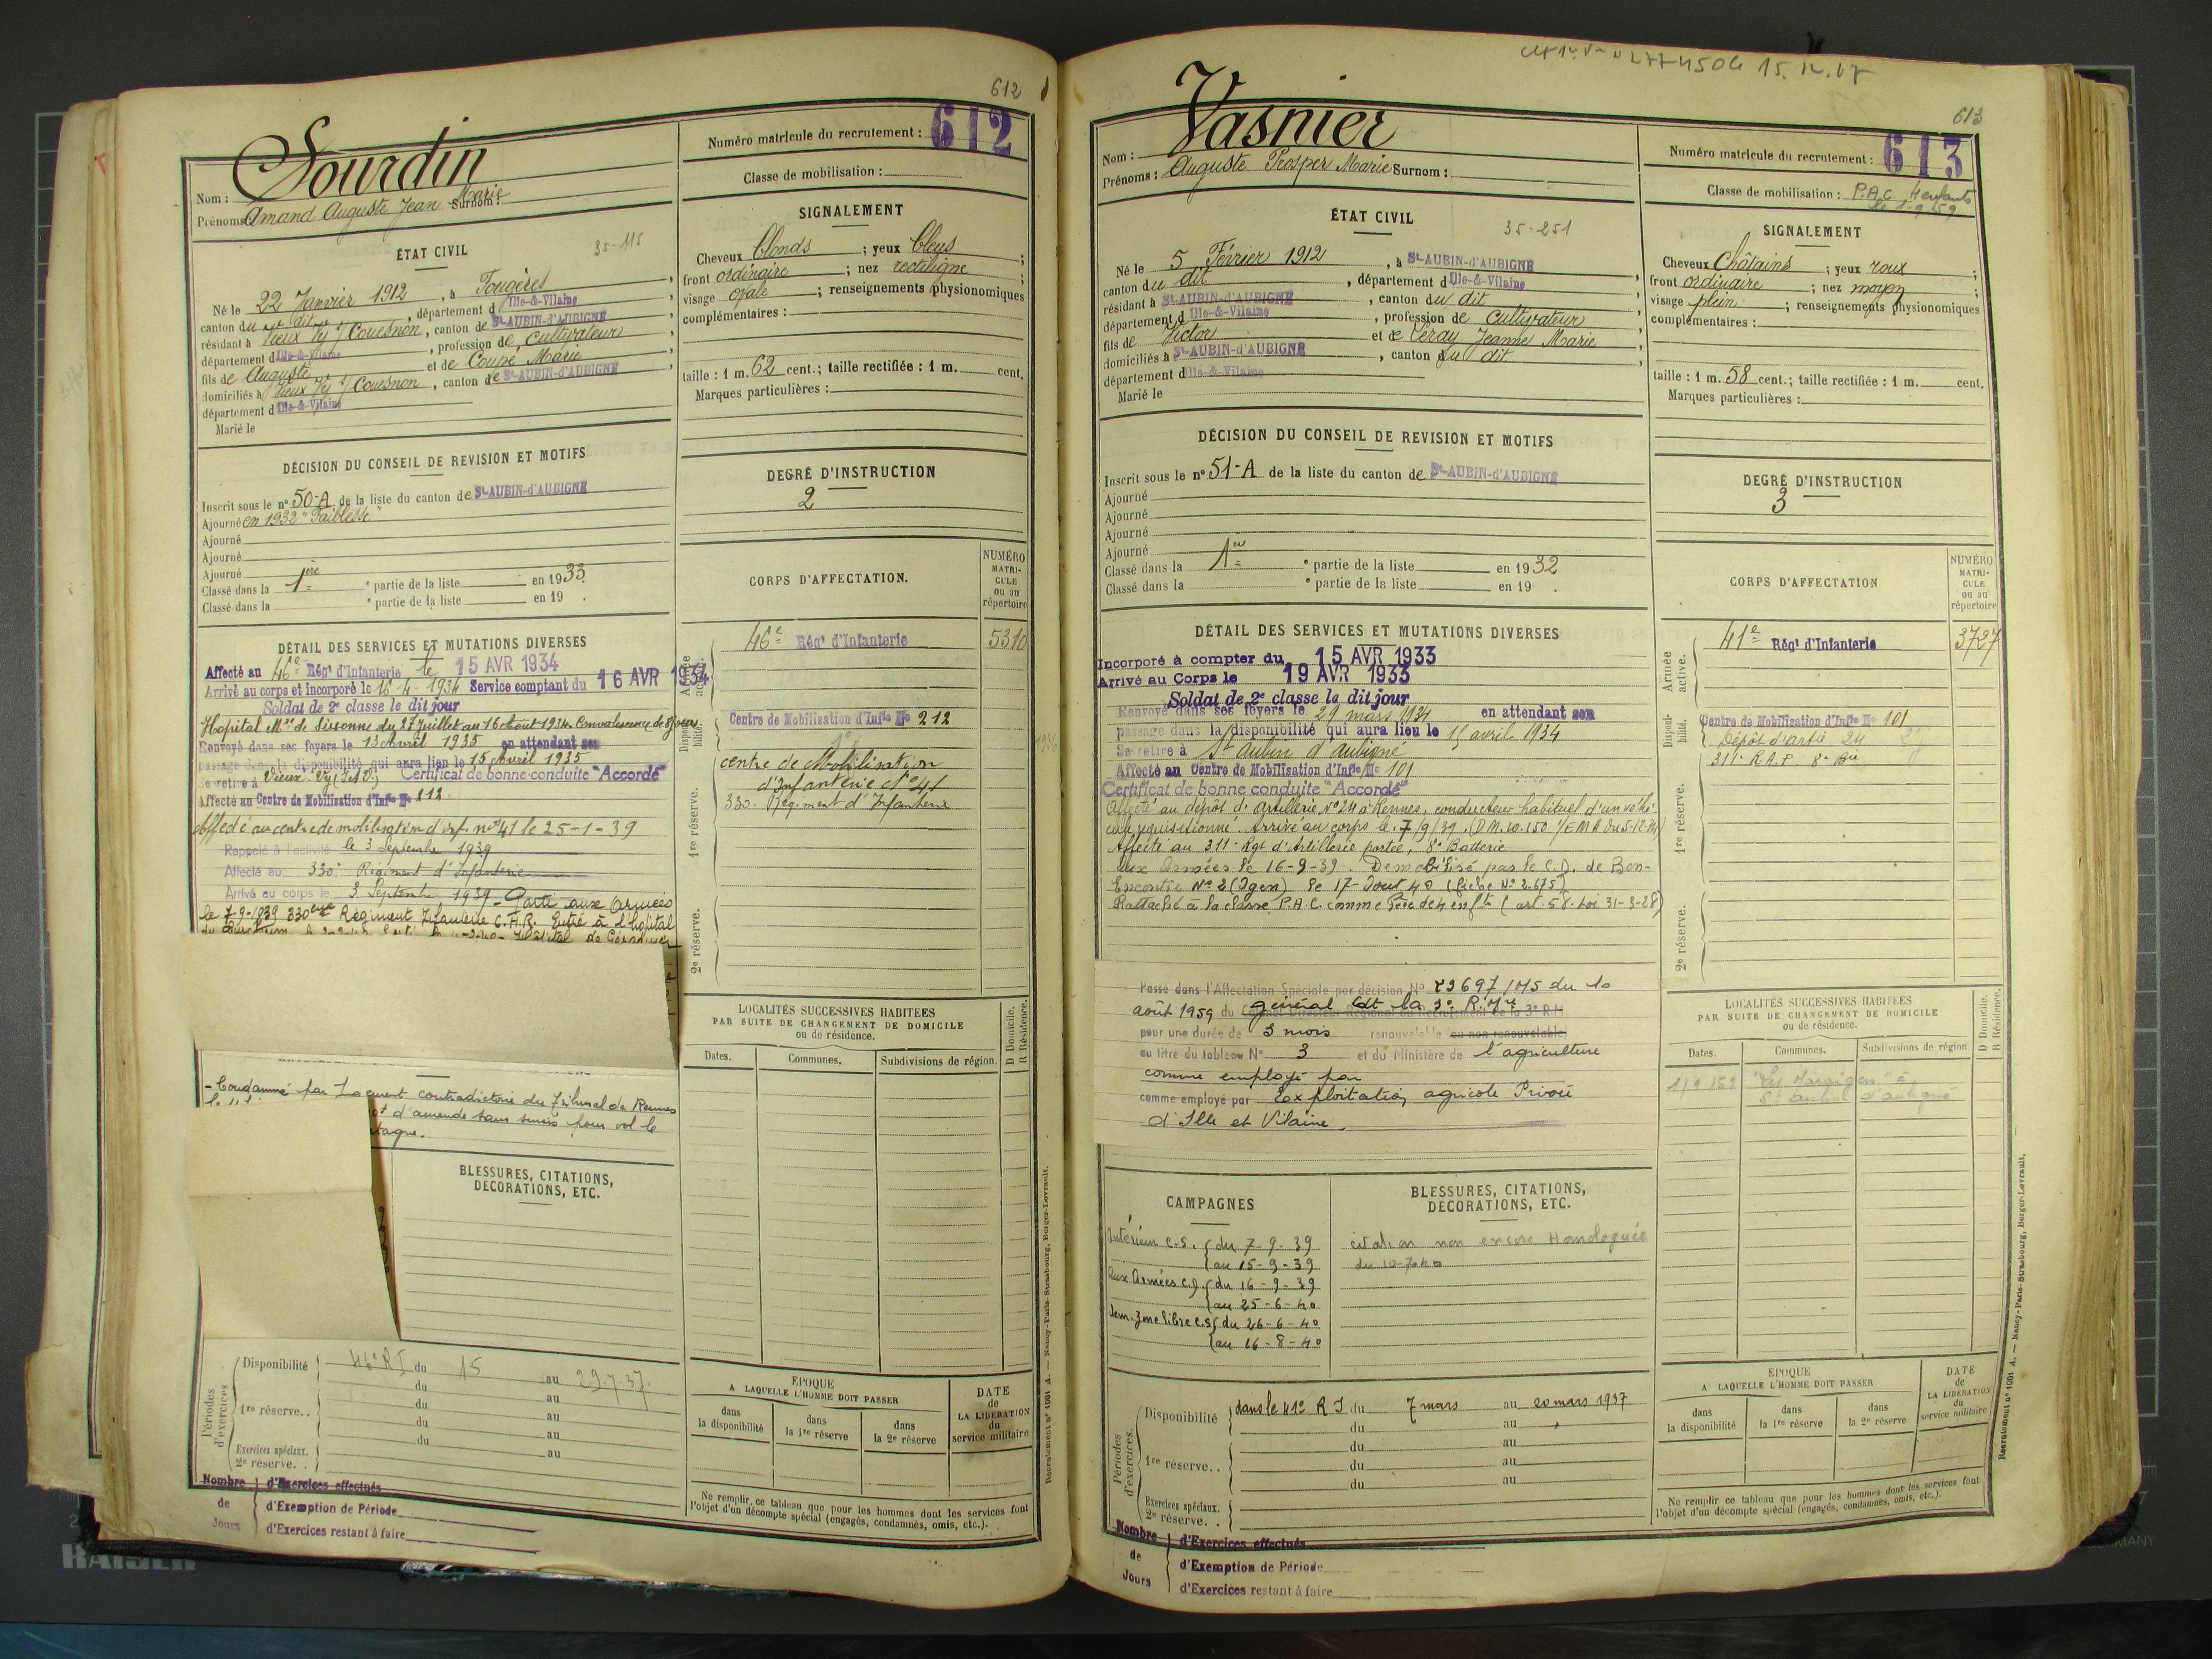 612
Sourdin
Nom :
Prénoms : Amand Auguste Jean Marie Surnom :
Numéro matricule du recrutement : 612
Classe de mobilisation :
ÉTAT CIVIL
35-115
Né le 22 Janvier 1912, à Fougères,
canton du dit, département d Ille-&-Vilaine
résidant à Vieux Vy s/ Couesnon, canton de St-AUBIN-d'AUBIGNÉ,
département d Ille-&-Vilaine, profession de cultivateur,
fils de Auguste et de Coupé Marie,
domiciliés à Vieux Vy s/ Couesnon, canton de St-AUBIN-d'AUBIGNÉ,
département d Ille-&-Vilaine
Marié le
SIGNALEMENT
Cheveux blonds ; yeux bleus ;
front ordinaire ; nez rectiligne ;
visage ovale ; renseignements physionomiques
complémentaires :
taille : 1 m. 62 cent. ; taille rectifiée : 1 m. cent.
Marques particulières :
DÉCISION DU CONSEIL DE REVISION ET MOTIFS
Inscrit sous le n° 50-A de la liste du canton de St-AUBIN-d'AUBIGNÉ
Ajourné en 1932 "Faiblesse"
Ajourné
Ajourné
Ajourné
Classé dans la 1ère partie de la liste en 1933.
Classé dans la e partie de la liste en 19 .
DEGRÉ D'INSTRUCTION
2
DÉTAIL DES SERVICES ET MUTATIONS DIVERSES
Affecté au 46e Régt d'Infanterie le 15 AVR 1934
Arrivé au corps et incorporé le 16-4-1934 Service comptant du 16 AVR 1934
Soldat de 2e classe le dit jour
Hopital Mre de Sissonne du 27 Juillet au 16 Août 1934. Convalescence de 8 jours.
Renvoyé dans ses foyers le 13 Avril 1935 en attendant son
passage dans la disponibilité qui aura lieu le 15 Avril 1935
Se retire à Vieux-Vy (I&V) Certificat de bonne conduite "Accordé"
Affecté au Centre de Mobilisation d'Infie No 212
Affecté au centre de mobilisation d'inf. n° 41 le 25-1-39
Rappelé à l'activité le 3 Septembre 1939
Affecté au 330e Régiment d'Infanterie
Arrivé au corps le 3 Septembre 1939 - Parti aux Armées
le 7-9-1939 330ème Régiment Infanterie C.A.R. Entré à l'hôpital
Hôpital de Gérardmer
- Condamné par Jugement contradictoire du Tribunal de Rennes
d'amende sans sursis pour vol le
CORPS D'AFFECTATION.
NUMÉRO MATRI-CULE ou au répertoire
Armée active.
46e Régt d'Infanterie 5310
Disponi-bilité.
Centre de Mobilisation d'Infie No 212
1re réserve.
centre de Mobilisation
d'Infanterie N° 41
330e Régiment d'Infanterie
2e réserve.
LOCALITÉS SUCCESSIVES HABITÉES
PAR SUITE DE CHANGEMENT DE DOMICILE
ou de résidence.
D Domicile.
R Résidence.
Dates. Communes. Subdivisions de région.
BLESSURES, CITATIONS,
DÉCORATIONS, ETC.
Périodes d'exercices
Disponibilité 46e RI du 15 au 29-7-37.
du au
1re réserve.. du au
du au
Exercices spéciaux. du au
2e réserve. .
ÉPOQUE
A LAQUELLE L'HOMME DOIT PASSER
dans la disponibilité
dans la 1re réserve
dans la 2e réserve
DATE de LA LIBÉRATION du service militaire
Ne remplir ce tableau que pour les hommes dont les services font
l'objet d'un décompte spécial (engagés, condamnés, omis, etc.).
Nombre de Jours
d'Exercices effectués
d'Exemption de Période
d'Exercices restant à faire
Recrutement n° 1001 A. — Nancy-Paris-Strasbourg, Berger-Levrault.
613
Vasnier
Nom :
Prénoms : Auguste Prosper Marie Surnom :
Numéro matricule du recrutement : 613
Classe de mobilisation : P.A.C. 4 enfants
le 1-9-59
ÉTAT CIVIL
35-251
Né le 5 Février 1912, à St-AUBIN-d'AUBIGNÉ
canton du dit, département d Ille-&-Vilaine,
résidant à St-AUBIN-d'AUBIGNÉ, canton du dit,
département d Ille-&-Vilaine, profession de cultivateur,
fils de Victor et de Léray Jeanne Marie,
domiciliés à St-AUBIN-d'AUBIGNÉ, canton du dit,
département d Ille-&-Vilaine
Marié le
SIGNALEMENT
Cheveux Châtains ; yeux roux ;
front ordinaire ; nez moyen ;
visage plein ; renseignements physionomiques
complémentaires :
taille : 1 m. 58 cent. ; taille rectifiée : 1 m. cent.
Marques particulières :
DÉCISION DU CONSEIL DE REVISION ET MOTIFS
Inscrit sous le n° 51-A de la liste du canton de St-AUBIN-d'AUBIGNÉ
Ajourné
Ajourné
Ajourné
Ajourné
Classé dans la 1ère partie de la liste en 1932
Classé dans la e partie de la liste en 19 .
DEGRÉ D'INSTRUCTION
3
DÉTAIL DES SERVICES ET MUTATIONS DIVERSES
Incorporé à compter du 15 AVR 1933
Arrivé au Corps le 19 AVR 1933
Soldat de 2e classe le dit jour
Renvoyé dans ses foyers le 29 mars 1934 en attendant son
passage dans la disponibilité qui aura lieu le 15 avril 1934
Se retire à St Aubin d'Aubigné
Affecté au Centre de Mobilisation d'Infie No 101
Certificat de bonne conduite "Accordé"
Affecté au dépôt d'Artillerie N° 24 à Rennes, conducteur habituel d'un véhi-
cule réquisitionné. Arrivé au corps le 7/9/39.
Affecté au 311e Rgt d'Artillerie portée, 8e Batterie
Aux Armées le 16-9-39. Démobilisé par le C.D. de Bon-
Encontre N° 2 (Agen) le 17-Aout 40 (fiche N° 2.675)
Rattaché à la classe P.A.C. comme Père de 4 enfts (art. 58. Loi 31-3-28)
Passé dans l'Affectation Spéciale par décision No 23697/MS du 10
août 1959 du général Cdt la 3e R.M
pour une durée de 3 mois renouvelable ou non renouvelable,
au titre du tableau No 3 et du Ministère de l'agriculture
comme employé par
comme employé par Exploitation agricole Privée
d'Ille et Vilaine
CORPS D'AFFECTATION
NUMÉRO MATRI-CULE ou au répertoire
Armée active.
41e Régt d'Infanterie 3727
Disponi-bilité.
Centre de Mobilisation d'Infie No 101
Dépôt d'artie 24
311e R.A.P. 8e Bie
1re réserve.
2e réserve.
LOCALITÉS SUCCESSIVES HABITÉES
PAR SUITE DE CHANGEMENT DE DOMICILE
ou de résidence.
D Domicile.
R Résidence.
Dates. Communes. Subdivisions de région.
St Aubin d'Aubigné
CAMPAGNES
Intérieur C.S. du 7-9-39
au 15-9-39
Aux Armées C.D. du 16-9-39
au 25-6-40
dem. zone libre C.S. du 26-6-40
au 16-8-40
BLESSURES, CITATIONS,
DÉCORATIONS, ETC.
citation non encore Homologuée
du 10-7-40
Périodes d'exercices.
Disponibilité dans le 41e R I du 7 mars au 20 mars 1937
du au
du au
1re réserve.. du au
du au
Exercices spéciaux.
2e réserve. .
ÉPOQUE
A LAQUELLE L'HOMME DOIT PASSER
dans la disponibilité
dans la 1re réserve
dans la 2e réserve
DATE de LA LIBÉRATION du service militaire
Ne remplir ce tableau que pour les hommes dont les services font
l'objet d'un décompte spécial (engagés, condamnés, omis, etc.).
Nombre de Jours
d'Exercices effectués
d'Exemption de Période
d'Exercices restant à faire
Recrutement n° 1001 A. — Nancy-Paris-Strasbourg, Berger-Levrault.